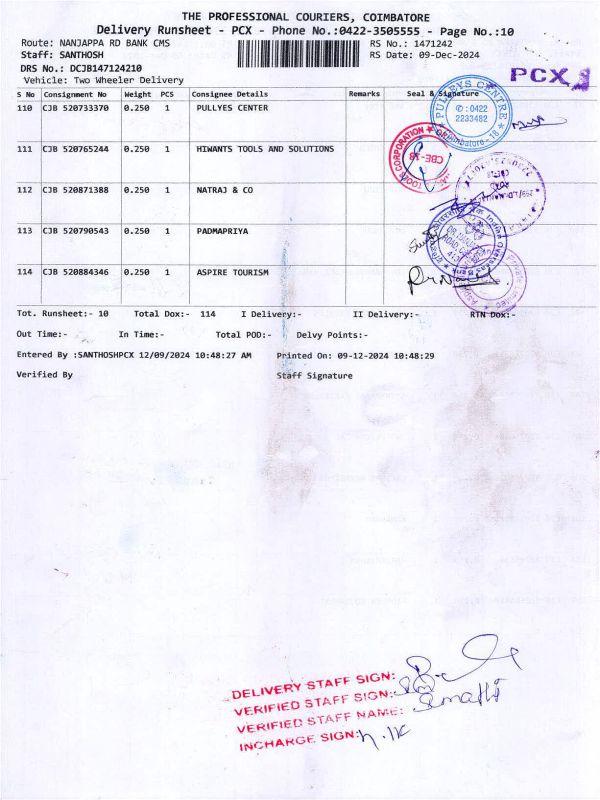 THE PROFESSIONAL COURIERS, COIMBATORE
Delivery Runsheet - PCX - Phone No.:0422-3505555 - Page No.:10
Route: NANJAPPA RD BANK CMS
RS No.: 1471242
Staff: SANTHOSH
RS Date: 09-Dec-2024
DRS No.: DCJB147124210
Vehicle: Two Wheeler Delivery
PCX
S No Consignment No Weight PCS Consignee Details Remarks Seal & Signature
110 CJB 520733370 0.250 1 PULLYES CENTER
PULLEYS CENTRE
✆ : 0422
2233482
Coimbatore - 18
111 CJB 520765244 0.250 1 HIWANTS TOOLS AND SOLUTIONS
TOOLS CORPORATION
CBE-18
112 CJB 520871388 0.250 1 NATRAJ & CO
113 CJB 520790543 0.250 1 PADMAPRIYA
Indian Overseas Bank
114 CJB 520884346 0.250 1 ASPIRE TOURISM
Private Limited
Tot. Runsheet:- 10 Total Dox:- 114 I Delivery:- II Delivery:- RTN Dox:-
Out Time:- In Time:- Total POD:- Delvy Points:-
Entered By :SANTHOSHPCX 12/09/2024 10:48:27 AM Printed On: 09-12-2024 10:48:29
Verified By Staff Signature
DELIVERY STAFF SIGN:
VERIFIED STAFF SIGN:
VERIFIED STAFF NAME:
INCHARGE SIGN: